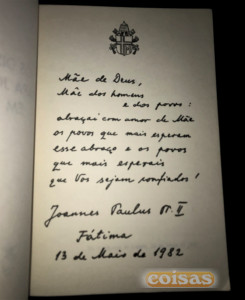 Mãe de Deus,
Mãe dos homens
e dos povos:
abraçai com amor de Mãe
os povos que mais esperam
esse abraço e os povos
que mais esperais
que Vos sejam confiados!
Joannes Paulus pp. II
Fátima
13 de Maio de 1982
coisas